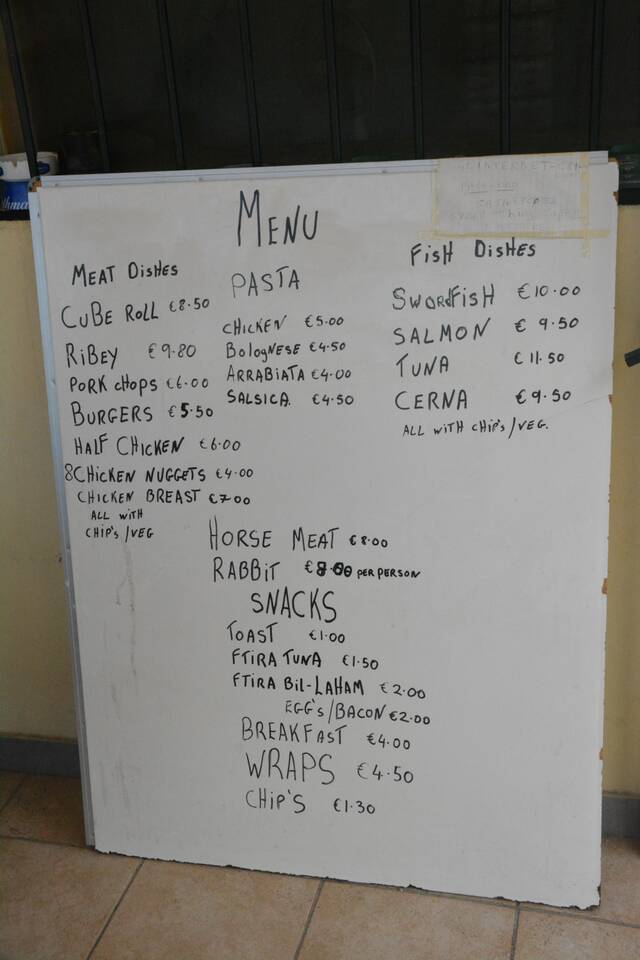 MENU
MEAT DISHES
CUBE ROLL €8.50
RiBEY €9.80
PORK CHOPS €6.00
BURGERS €5.50
HALF CHICKEN €6.00
8CHICKEN NUGGETS €4.00
CHICKEN BREAST €7.00
ALL WITH
CHiP's/VEG
PASTA
CHICKEN €5.00
BologNESE €4.50
ARRABiATA €4.00
SALSICA. €4.50
FisH DisHES
SWORDFISH €10.00
SALMON €9.50
TUNA €11.50
CERNA €9.50
ALL WiTH CHiP's/VEG.
HORSE MEAT €8.00
RABBiT PER PERSON
SNACKS
TOAST €1.00
FTiRA TUNA €1.50
FTiRA BiL-LAHAM €2.00
EGG's/BACON €2.00
BREAKFAST €4.00
WRAPS €4.50
CHiP'S €1.30